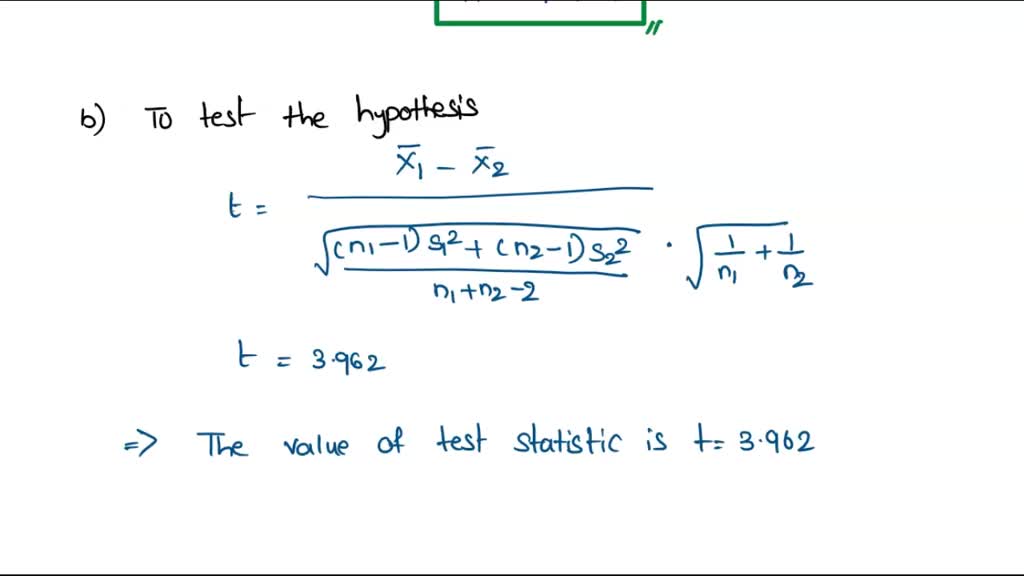 b) To test the hypothesis
t = x̄₁ - x̄₂ / √((n₁-1)S₁²+(n₂-1)S₂² / n₁+n₂-2) · √(1/n₁ + 1/n₂)
t = 3.962
=> The value of test statistic is t= 3.962